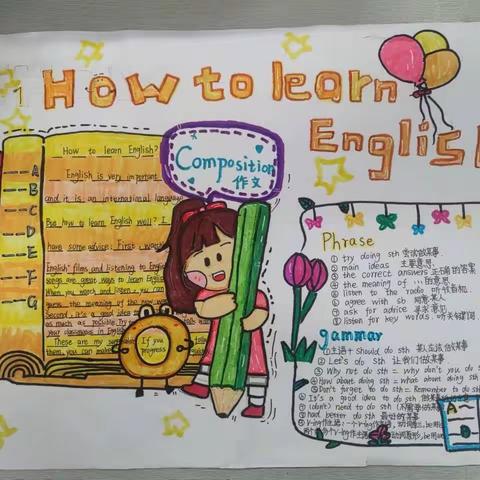 How to learn
English
Composition
作文
How to learn English?
English is very important
and it is an international language
But how to learn English well? I
have some advice: First, watching
English films and listening to English
songs are great ways to learn English
When you watch and listen, you can
guess the meaning of the new words
Second, it's a good idea to
as much as possible. Try
your classmates in English
These are my
them, you can make
A
B
C
D
E
F
G
If you
progress
Phrase
① try doing sth 尝试做某事
② main ideas 主要意思
③ the correct answers 正确的答案
④ the meaning of ... 的意思
⑤ listen to the radio 听收音机
⑥ agree with sb 同意某人
⑦ ask for advice 寻求意见
⑧ listen for key words. 听关键词
gammar
① 主语 + should do sth 某人应该做某事
② Let's do sth 让我们做某事
③ Why not do sth = why don't you do
④ How about doing sth = what about doing sth
⑤ Don't forget to do sth = Remember to do sth
⑥ It's a good idea to do sth
⑦ (don't) need to do sth
⑧ had better do sth 最好做某事
A